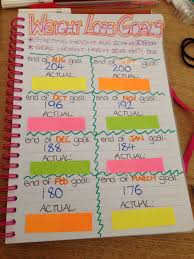 WEIGHT LOSS GOALS
STARTING WEIGHT AUG 2014
GOAL WEIGHT MARCH 2015
End of AUG goal:
204
ACTUAL:
End of SEPT goal:
200
ACTUAL:
End of OCT goal:
196
ACTUAL:
End of NOV goal:
192
ACTUAL:
End of DEC goal:
188
ACTUAL:
End of JAN goal:
184
ACTUAL:
End of Feb goal:
180
ACTUAL:
End of MARCH goal:
176
ACTUAL: